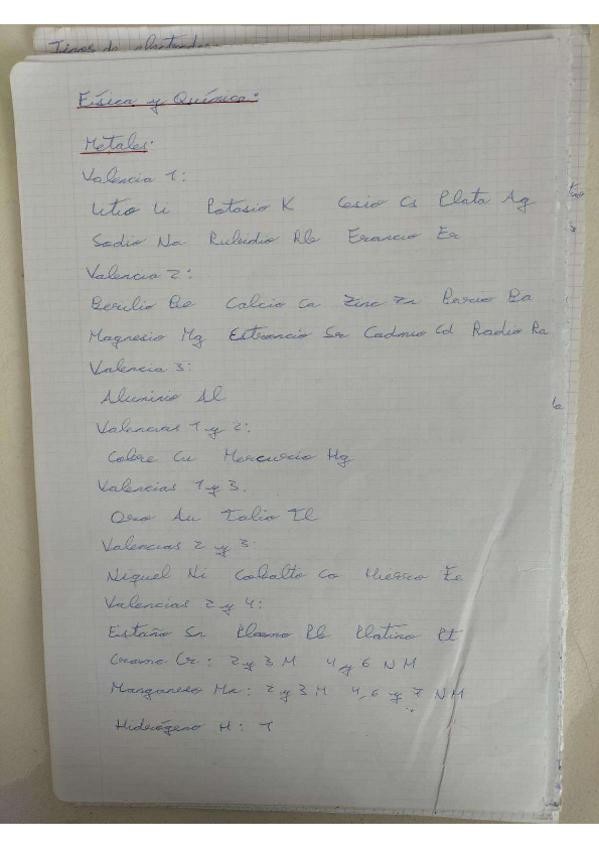 Tipos de
Física y Química:
Metales:
Valencia 1:
Litio Li Potasio K Cesio Cs Plata Ag
Sodio Na Rubidio Rb Francio Fr
Valencia 2:
Berilio Be Calcio Ca Zinc Zn Barcio Ba
Magnesio Mg Estroncio Sr Cadmio Cd Radio Ra
Valencia 3:
Aluminio Al
Valencias 1 y 2:
Cobre Cu Mercurio Hg
Valencias 1 y 3.
Oro Au Talio Tl
Valencias 2 y 3:
Níquel Ni Cobalto Co Hierro Fe
Valencias 2 y 4:
Estaño Sn Plomo Pb Platino Pt
Cromo Cr: 2 y 3 M 4 y 6 NM
Manganeso Mn: 2 y 3 M 4,6 y 7 NM
Hidrógeno H: 1